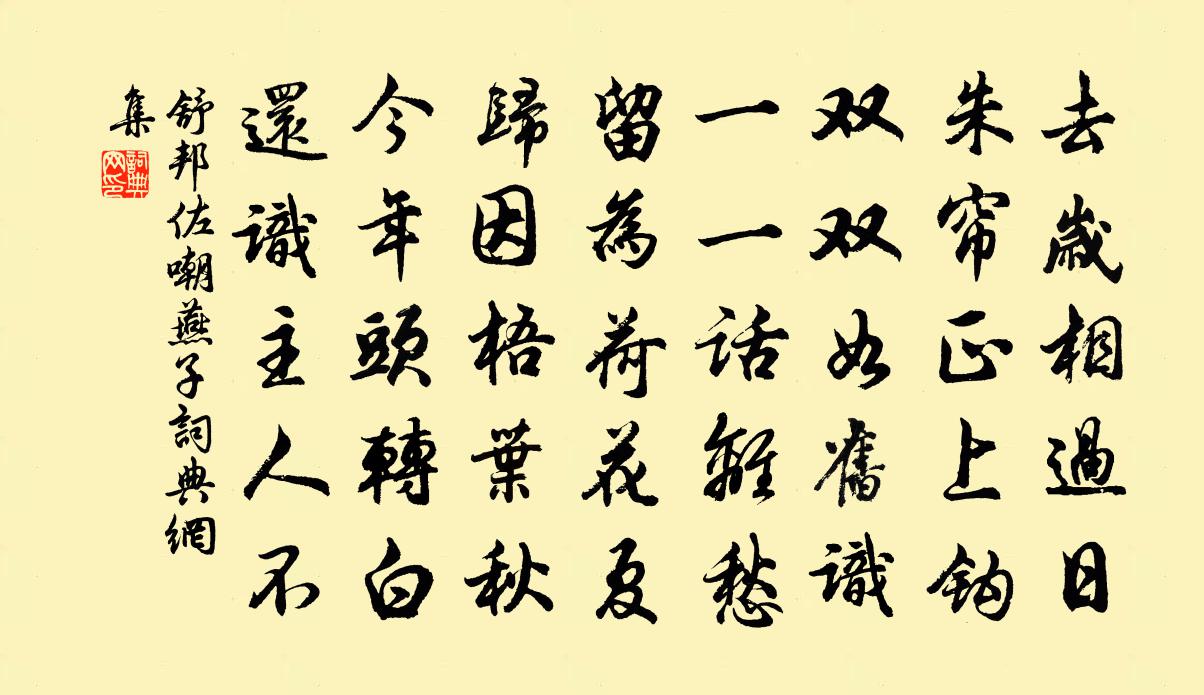 去歲相過日
朱帘正上鈎
双双如舊識
一一話離愁
留為荷花夏
歸因梧葉秋
今年頭轉白
還識主人不
舒邦佐嘲燕子詞典網
集
詞典
网印